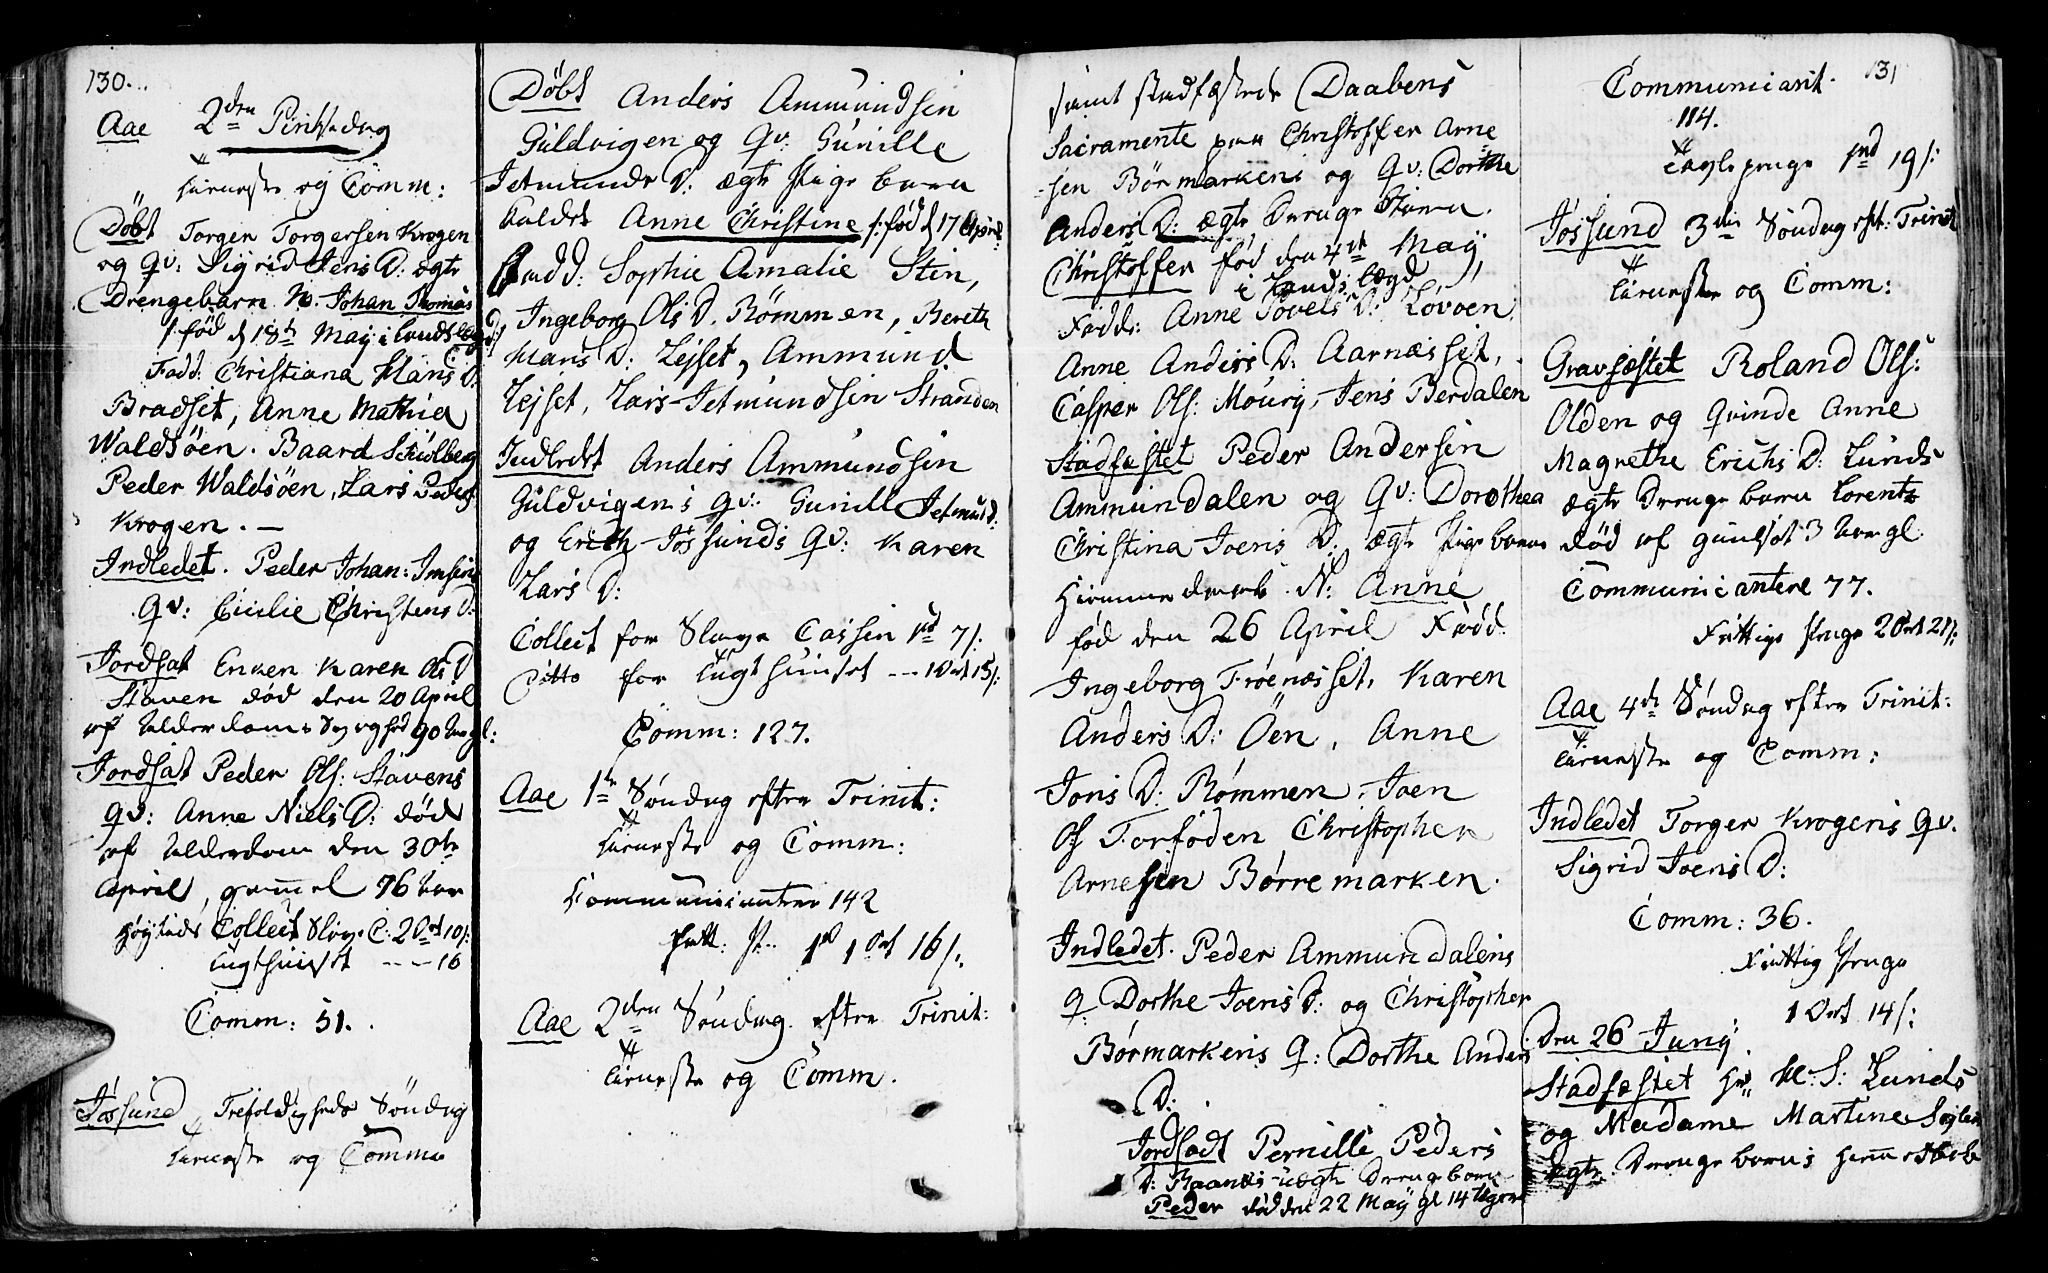 130.
Aae 2den Pintsedag
Tieneste og Comm:
Döbt Torger Torgersen Krogen
og Qv: Sigrid Jens D: ægte
Drengebarn N. Johan Thomas
/: fød d 18de May i Lands lægd :/
Fadd: Christiana Hans D:
Bradset, Anne Mathia
Waldsöen. Baard Schiolberg
Peder Waldsöen, Lars Peders:
Krogen. —
Indledet. Peder Johan: Imsens
Qv: Cicilie Christens D:
Jordsat Enken Karen Ols D
Staven død den 20 April
af Alderdoms Svaghed 90 Aar gl:
Jordsat Peder Ols: Stavens
Qv: Anne Niels D: død
af Alderdom den 30te
April, gammel 76 Aar
Høytids Collect Slav. C: 2 Ort 10 /:
Tugthuuset -- 16
Comm: 51.
Jössund Trefoldigheds Söndag
Tieneste og Comm
Döbt Anders Ammundsen
Guldvigen og Qv: Gunille
Jetmunds D: ægte Pige barn
kaldet Anne Christine /: fød d 17 April :/
Fadd: Sophie Amalie Stin,
Ingeborg Ols D. Römmen, Bereth
Hans D: Lejset, Ammund
Lejset, Lars Jetmundsen Stranden
Indledet Anders Ammundsen
Guldvigens Qv: Gunill Jetmund:
og Erich Jössunds Qv: Karen
Lars D:
Collect for Slave Cassen 1rd 7 /:
Ditto for Tugthuuset -- 1 Ort 15 /:
Comm: 127.
Aae 1te Söndag efter Trinit:
Tieneste og Comm:
Communicantere 142
Fatt: P. 1rd 1 Ort 16 /:
Aae 2den Söndag efter Trinit:
Tieneste og Comm.
samt stadfæstede Daabens
Sacramente paa Christoffer Arne
sen Börmarkens og Qv: Dorthe
Anders D: ægte Drenge Barn
Christoffer fød den 4de May,
i Lands lægd
Fadd: Anne Povels D: Lovoen
Anne Anders D: Aarnæsset,
Casper Ols: Moury, Jens Berdalen
Stadfæstet Peder Andersen
Ammundalen og Qv: Dorothea
Christina Joens D: ægte Pige barn
Hiemmedøbt N: Anne
fød den 26 April Fadd:
Ingeborg Fröenæsset, Karen
Anders D: Öen, Anne
Joris D: Römmen, Joen
Ols Forfoden Christopher
Arnesen Börremarken.
Indledet. Peder Ammundalens
Q. Dorthe Joens D: og Christopher
Börmarkens Q: Dorthe Anders
D:
Jordsadt Pernille Peders
D: Raanæs uægte Drengebarn
Peder död den 22 May gl 14 Uger
131
Communicant.
114.
Tavle penge 1rd 19 /:
Jössund 3die Söndag eft: Trinit
Tieneste og Comm:
Gravfæstet Roland Ols:
Olden og Qvinde Anne
Magrethe Erichs D: Lunds
ægte Drenge barn Lorentz
död af guulsot 3 Aar gl
Communicantere 77.
Fattige penge 2 Ort 21 /:
Aae 4de Söndag efter Trinit:
Tieneste og Comm:
Indledet Torger Krogens Qv.
Sigrid Joens D:
Comm: 36.
Fattig penge
1 Ort 14 /:
Den 26 Juny
Stadfæstet Hr. M: S: Lunds
og Madame Martine
ægte Drenge barns